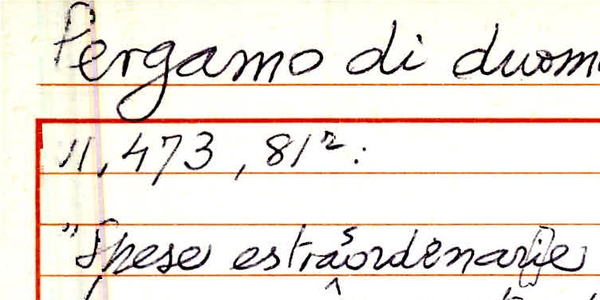 Pergamo di duom
II, 473, 81r:
"Spese estrasordenarie